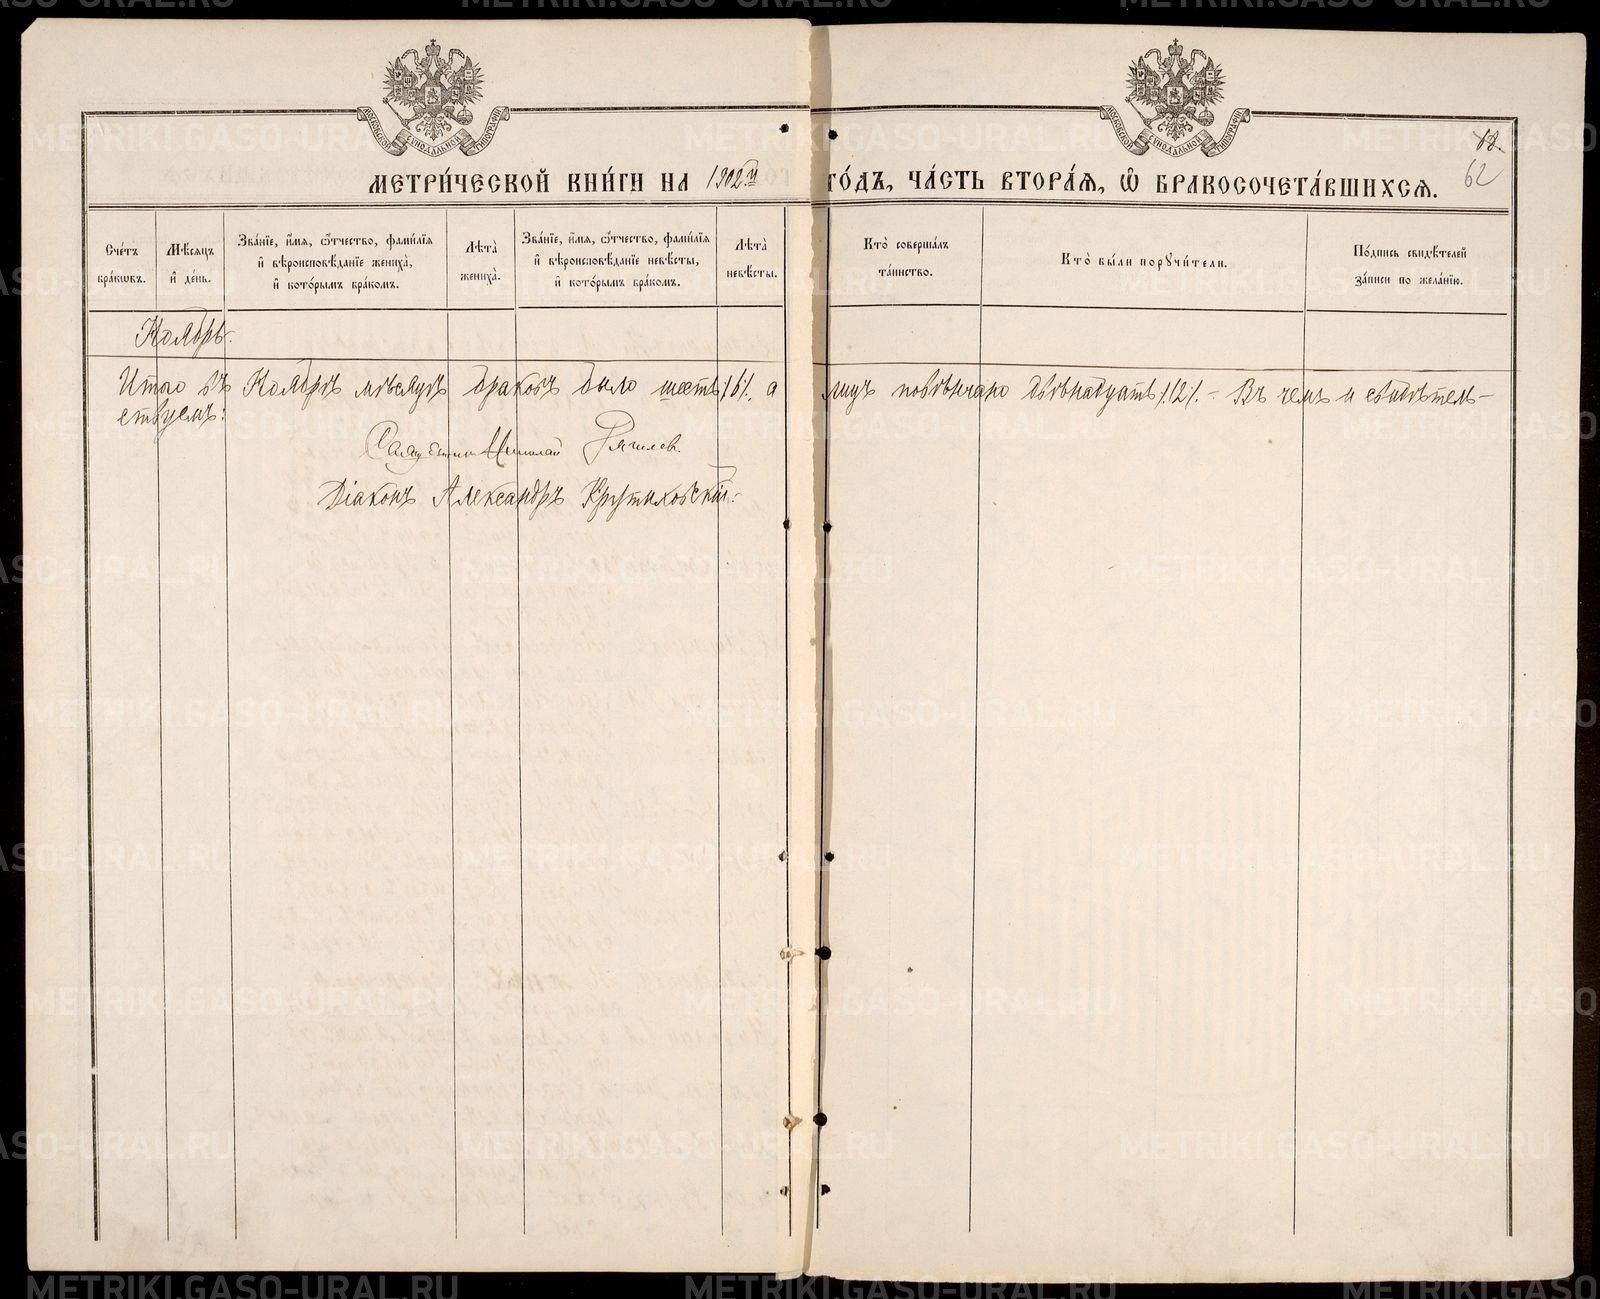 МОСКОВСКОЙ СѴНОДАЛЬНОЙ ТИПОГРАФІИ
МОСКОВСКОЙ СѴНОДАЛЬНОЙ ТИПОГРАФІИ
62
МЕТРИ́ЧЕСКОЙ КНИ́ГИ НА 1902й ГО́ДЪ, ЧА́СТЬ ВТОРА́Я, Ѽ БРАКОСОЧЕТА́ВШИХСѦ.
Сче́тъ бра́кѡвъ.
Мѣ́сѧцъ и҆ де́нь.
Зва́нїе, и҆́мѧ, ѻ҆́тчество, фами́лїѧ и҆ вѣроисповѣ́данїе жениха̀, и҆ кото́рымъ бра́комъ.
Лѣ́та жениха̀.
Зва́нїе, и҆́мѧ, ѻ҆́тчество, фами́лїѧ и҆ вѣроисповѣ́данїе невѣ́сты, и҆ кото́рымъ бра́комъ.
Лѣ́та невѣ́сты.
Кто̀ соверша́лъ та́инство.
Кто̀ бы́ли порꙋчи́тели.
По́дпись свидѣ́телей за́писи по жела́нїю.
Ноябрь.
Итого въ Ноябрѣ мѣсяцѣ браковъ было шесть /.6/., а лицъ повѣнчано двѣнадцать /.12/. – Въ чемъ и свидѣтель-
ствуемъ:
Священникъ Николай
Діаконъ Александръ Крутиховскій.